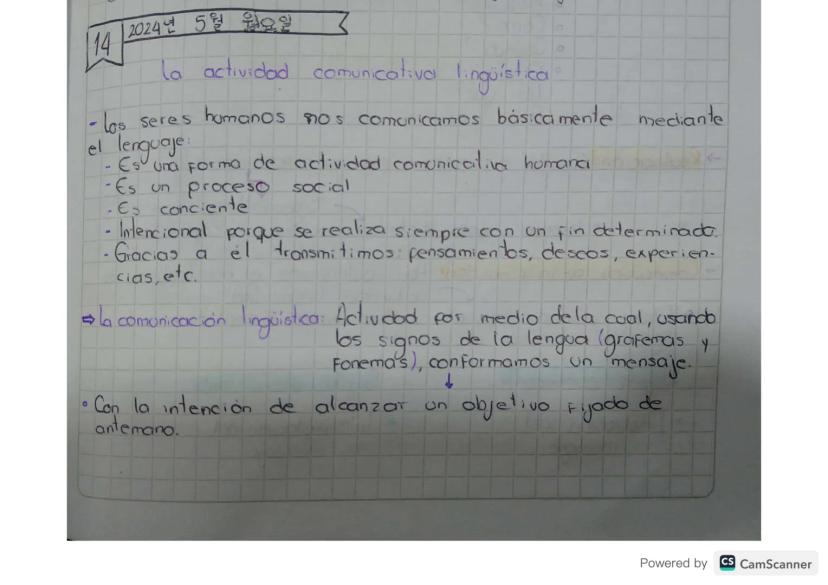 14
2024년 5월 월요일
la actividad comunicativa lingüística
- los seres humanos nos comunicamos básicamente mediante
el lenguaje:
- Es una forma de actividad comunicativa humana
- Es un proceso social
- Es conciente
- Intencional porque se realiza siempre con un fin determinado.
- Gracias a él transmitimos: pensamientos, deseos, experien-
cias, etc.
⇒ la comunicación lingüística: Actividad por medio de la cual, usando
los signos de la lengua (grafemas y
fonemas), conformamos un mensaje.
↓
• Con la intención de alcanzar un objetivo fijado de
antemano.
Powered by CS CamScanner